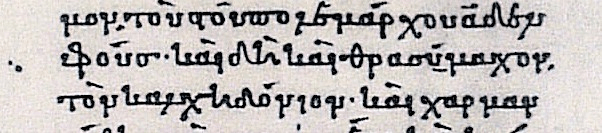 μον, τοὺς τοῦ πολεμάρχου ἀδελ
φούς· καὶ δὴ καὶ θρασύμαχον,
τὸν καλχηδόνιον· καὶ χαρμαν